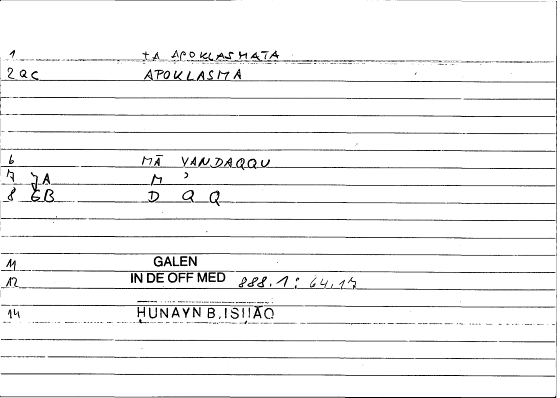 1 TA APOKLASMATA
2 QC APOKLASMA
6 MĀ YANDAQQU
7 JA M ʾ
8 GB D Q Q
11 GALEN
12 IN DE OFF MED 888.1: 64.17
14 ḤUNAYN B. ISḤĀQ